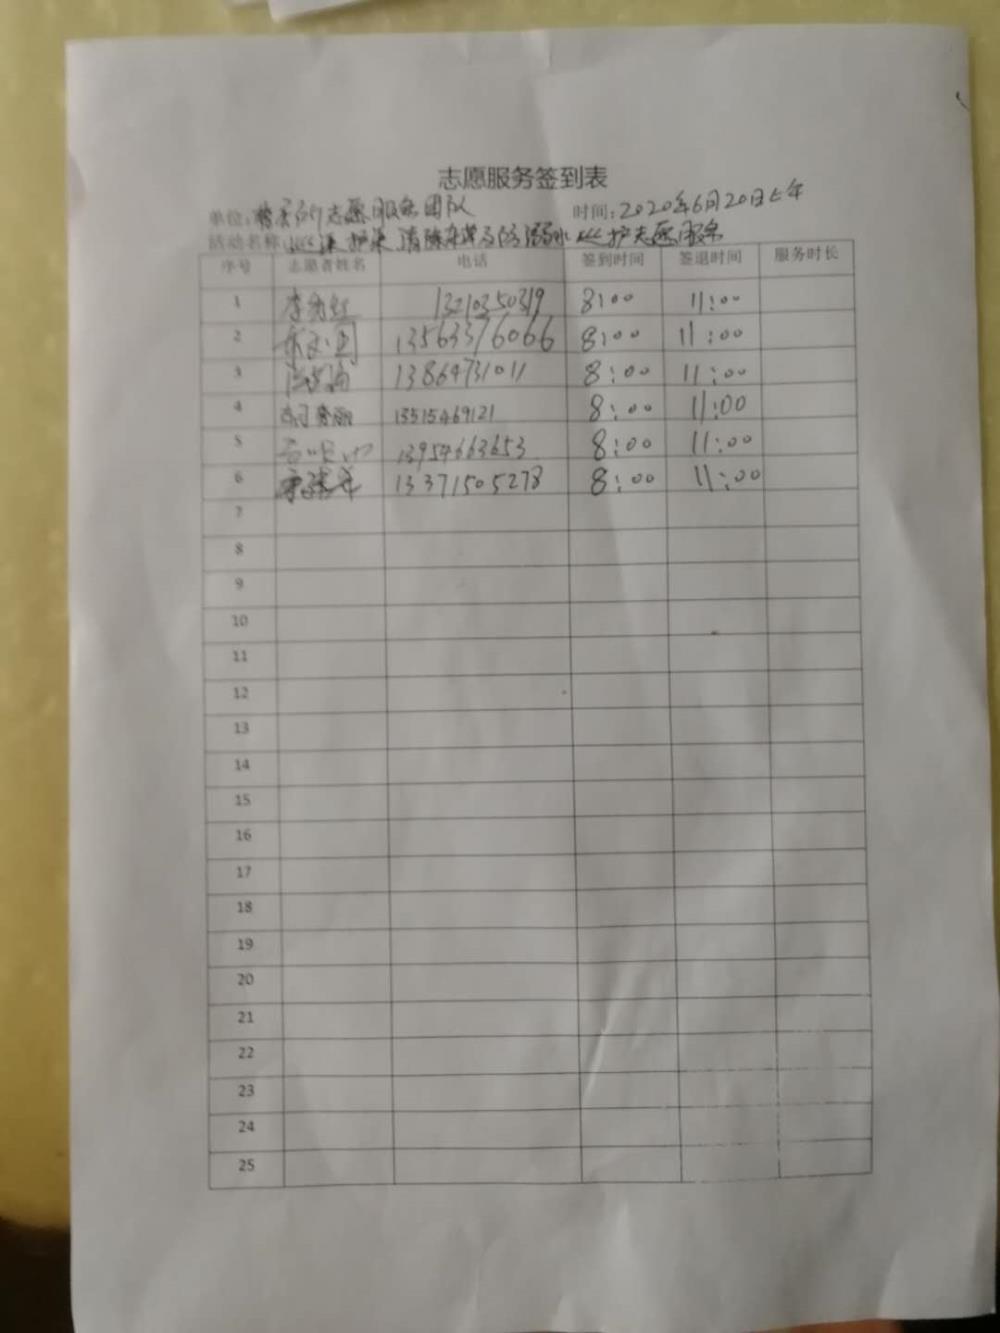 志愿服务签到表
单位: 志愿服务团队 时间: 2020年6月20日上午
活动名称 护渠 清除杂草及防溺水 护志愿服务
序号 志愿者姓名 电话 签到时间 签退时间 服务时长
1 13210350319 8:00 11:00
2 13563376066 8:00 11:00
3 13864731011 8:00 11:00
4 胡秀丽 13515469121 8:00 11:00
5 13954663653 8:00 11:00
6 13371505278 8:00 11:00
7
8
9
10
11
12
13
14
15
16
17
18
19
20
21
22
23
24
25